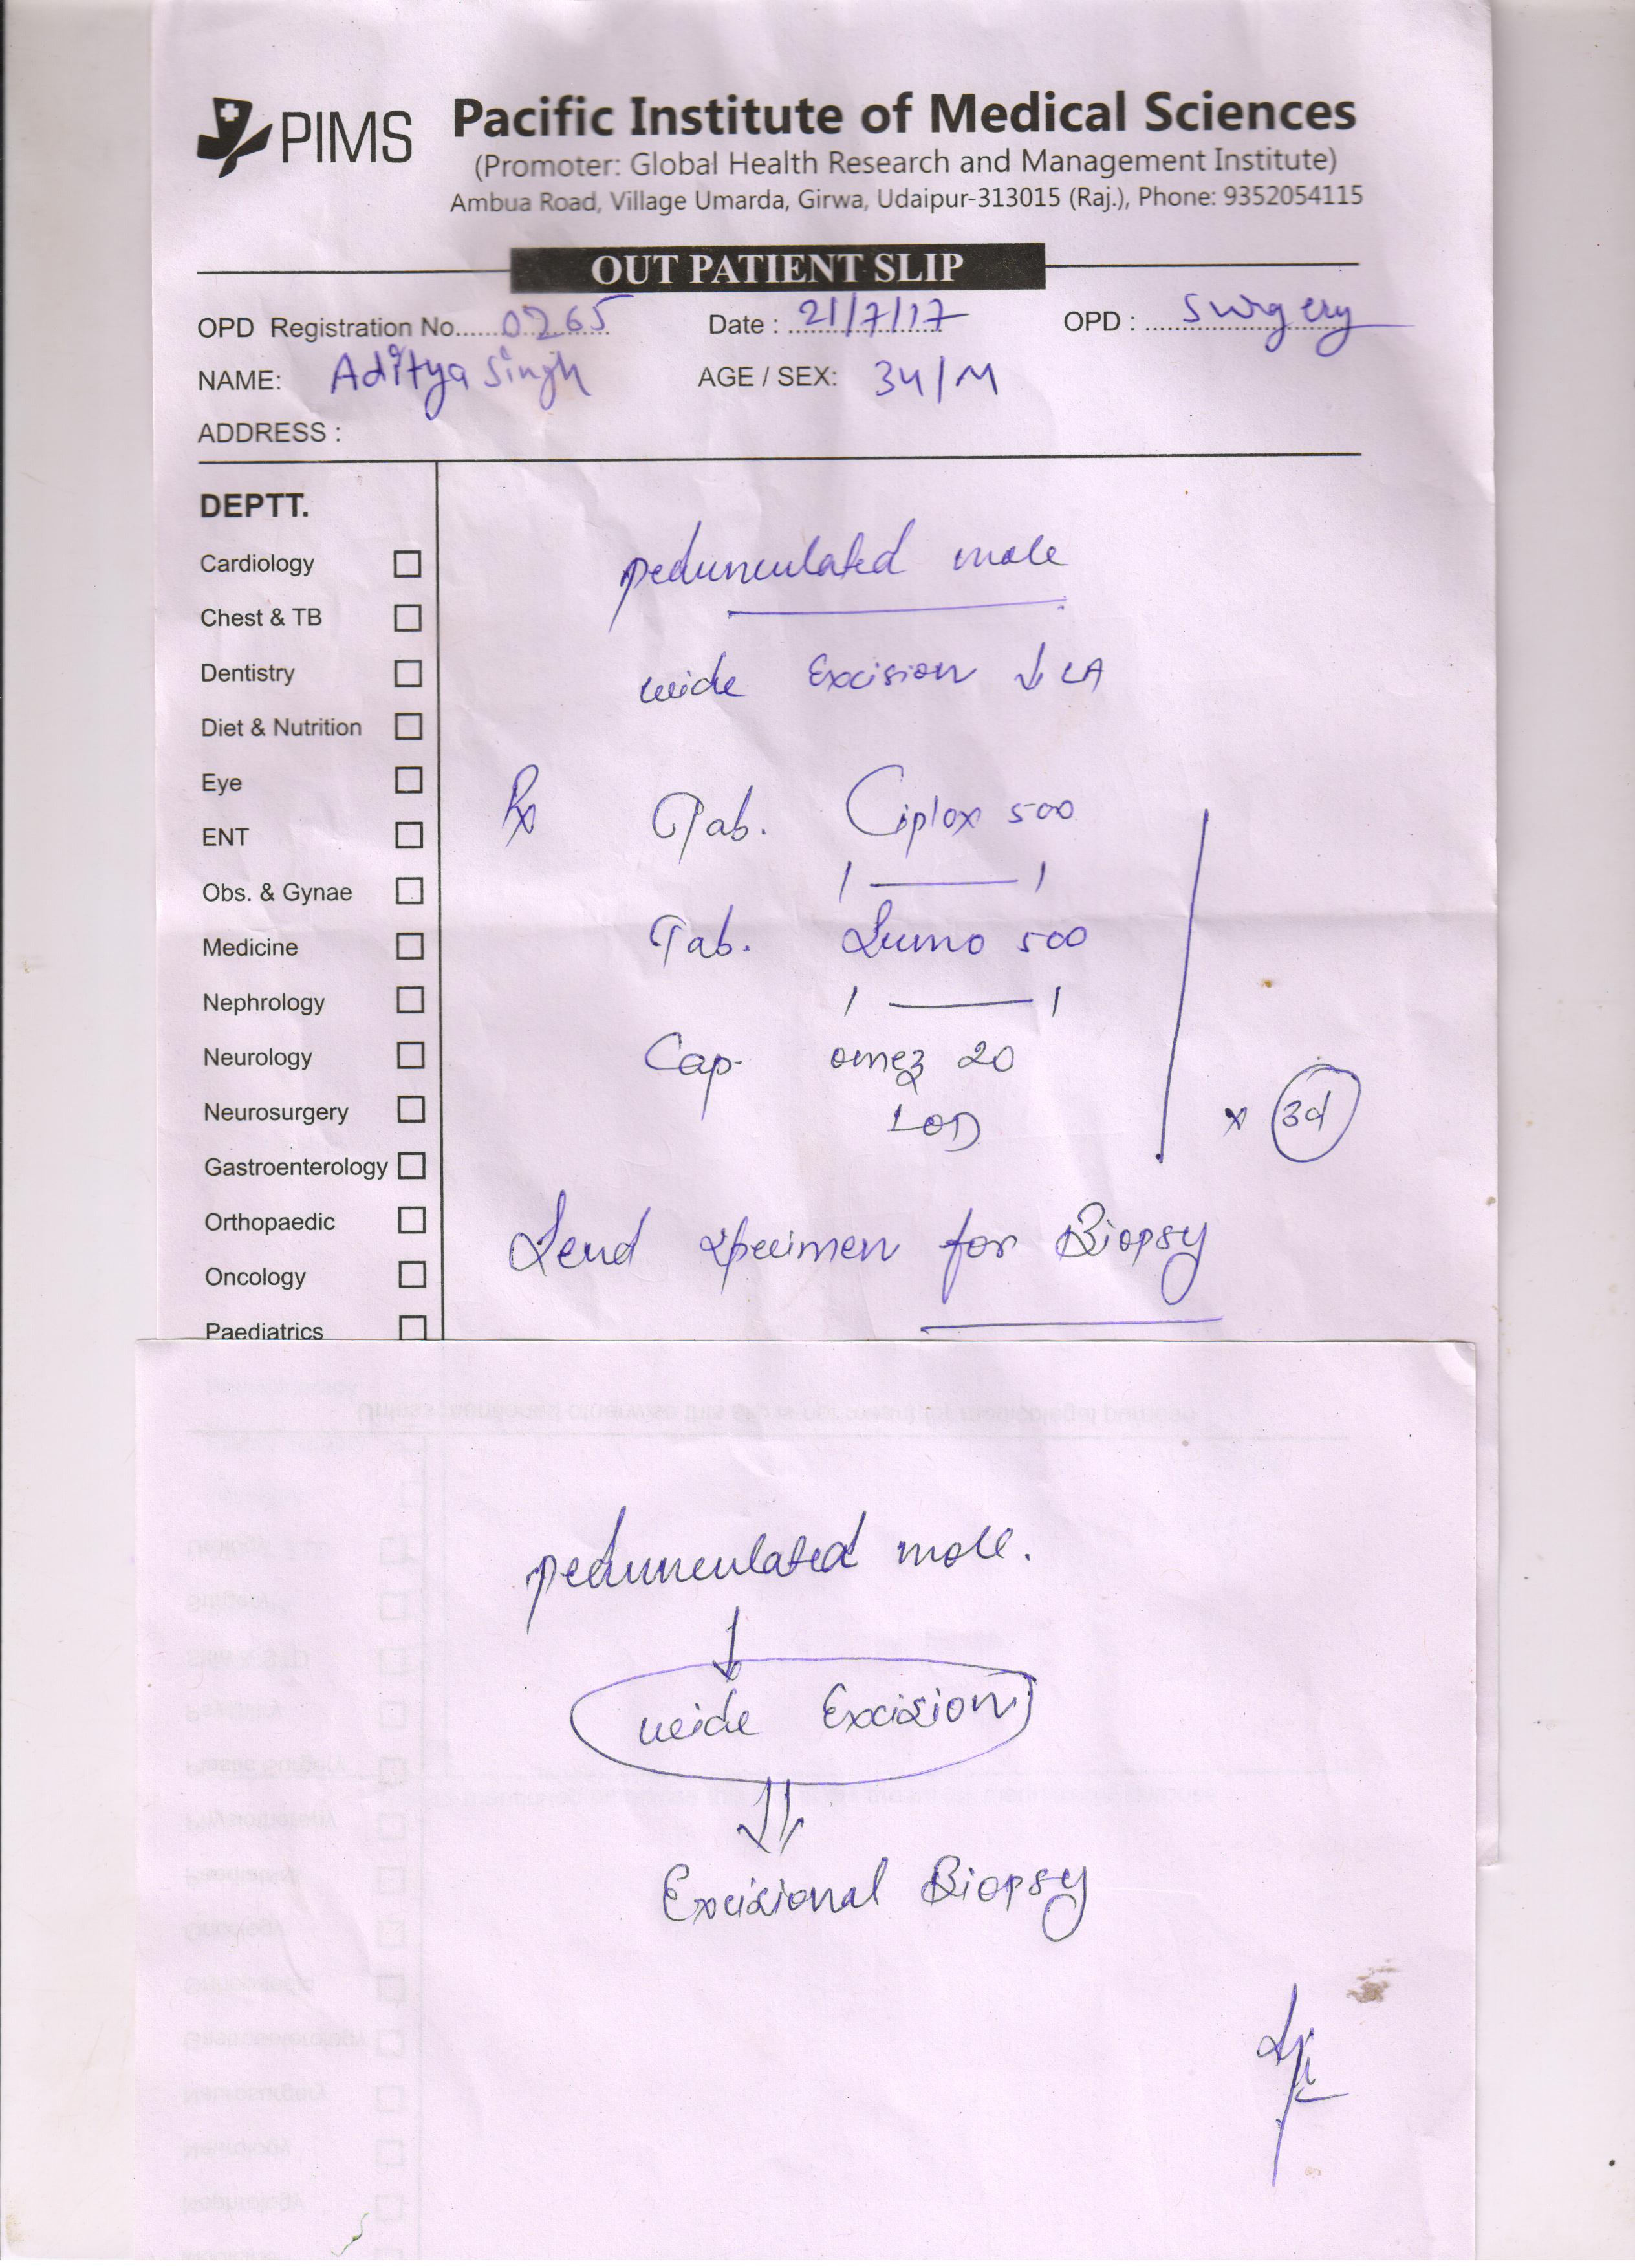 PIMS
Pacific Institute of Medical Sciences
(Promoter: Global Health Research and Management Institute)
Ambua Road, Village Umarda, Girwa, Udaipur-313015 (Raj.), Phone: 9352054115
OUT PATIENT SLIP
OPD Registration No...... 0265 Date : 21/7/17 OPD : surgery
NAME: Aditya Singh AGE / SEX: 34/M
ADDRESS :
DEPTT.
Cardiology
Chest & TB
Dentistry
Diet & Nutrition
Eye
ENT
Obs. & Gynae
Medicine
Nephrology
Neurology
Neurosurgery
Gastroenterology
Orthopaedic
Oncology
Paediatrics
pedunculated mole
wide Excision ↓ LA
Rx Tab. Ciplox 500
1 —— 1
Tab. Lumo 500
1 —— 1
Cap. omez 20
1 OD
x 3d
Send specimen for Biopsy
pedunculated mole.
↓
wide Excision
⇓
Excisional Biopsy